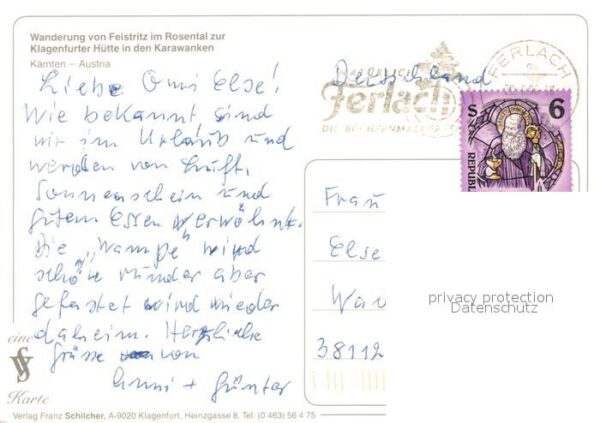 Wanderung von Feistritz im Rosental zur
Klagenfurter Hütte in den Karawanken
Kärnten – Austria
Liebe Omi Else!
Wie bekannt, sind
wir im Urlaub und
werden von Luft,
Sonnenschein und
gutem Essen verwöhnt.
Die „Wampe" wird
schön runder aber
gefastet wird wieder
daheim. Herzliche
Grüsse von
Anni + Günter
eine
Karte
Verlag Franz Schilcher, A-9020 Klagenfurt, Heinzgasse 6, Tel. (0 463) 56 4 75
Deutschland
ferlach
FERLACH
S 6
REPUBL
Frau
Else
38112
privacy protection
Datenschutz